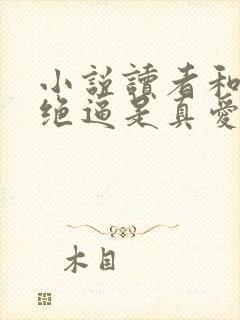 小説讀者和
绝逼是真愛
木目